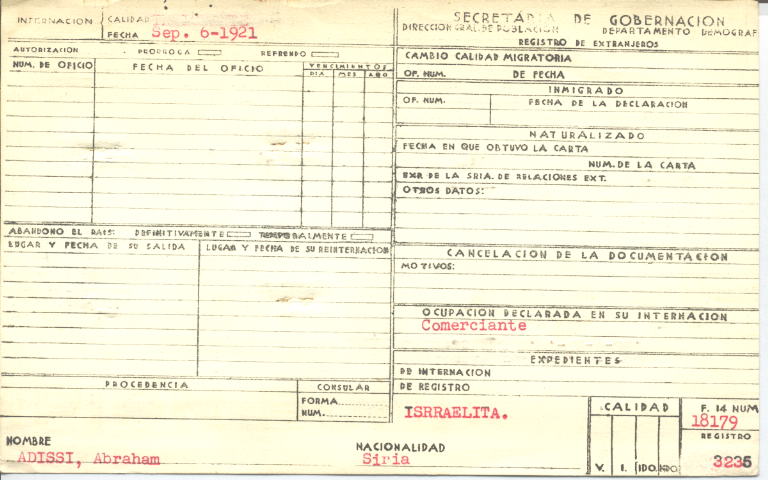 INTERNACION
CALIDAD
FECHA Sep. 6-1921
AUTORIZACION PRORROGA REFRENDO
NUM. DE OFICIO FECHA DEL OFICIO VENCIMIENTOS
DIA MES AÑO
ABANDONO EL PAIS: DEFINITIVAMENTE TEMPORALMENTE
LUGAR Y FECHA DE SU SALIDA LUGAR Y FECHA DE SU REINTERNACION
PROCEDENCIA CONSULAR
FORMA
NUM.
NOMBRE
ADISSI, Abraham
NACIONALIDAD
Siria
SECRETARIA DE GOBERNACION
DIRECCION GRAL. DE POBLACION DEPARTAMENTO DEMOGRAF
REGISTRO DE EXTRANJEROS
CAMBIO CALIDAD MIGRATORIA
OF. NUM. DE FECHA
INMIGRADO
OF. NUM. FECHA DE LA DECLARACION
NATURALIZADO
FECHA EN QUE OBTUVO LA CARTA
NUM. DE LA CARTA
EXP. DE LA SRIA. DE RELACIONES EXT.
OTROS DATOS:
CANCELACION DE LA DOCUMENTACION
MOTIVOS:
OCUPACION DECLARADA EN SU INTERNACION
Comerciante
EXPEDIENTES
DE INTERNACION
DE REGISTRO
ISRRAELITA.
CALIDAD
V. I. IDO. NDO.
F. 14 NUM
18179
REGISTRO
3235